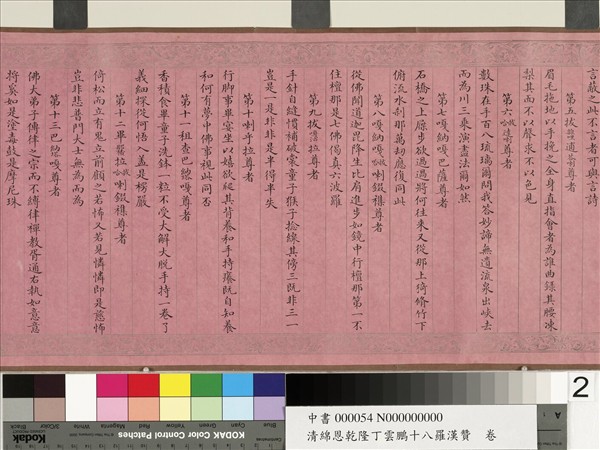 言蔽此不言者可與言詩
第五拔雜通茀尊者
眉毛拖地以手挽之全身直指會者為誰曲錄其腰凍
梨其面不以聲求不以色見
第六哈達尊者
數珠在手百八琉璃爾問我答妙諦無遺流泉出峽去
而為川三乘演盡法爾如然
第七嘎納嘎巴薩尊者
石橋之上厥步欲過過將何往來又從那上猗脩竹下
俯流水刹那萬劫應復同此
第八嘎納嘎哈喇錣雜尊者
從佛聞道迦毘降生比肩進步如鏡中行檀那第一不
住檀那是七佛偈真六波羅
第九拔嘎拉尊者
手針自縫憒補破裳童子猴子捻線其傍三既非三一
豈是一是非非是半得半失
第十喇乎拉尊者
行腳事畢宴坐以嬉欲縱其背養和手持癢既自知養
和何有夢中佛事視此同否
第十一租查巴塔嘎尊者
香積食畢童子洗鉢一粒不受大解大脫手持一卷了
義細探從何悟入蓋是楞嚴
第十二畢拉哈喇錣雜尊者
倚松而立有鬼立前顧之若怖又若見憐憐即是慈怖
豈非悲普門大士無為而為
第十三巴塔嘎尊者
佛大弟子傳律之宗而不縛律禪教胥通右執如意意
將奚如是塗毒鼓是摩尼珠
Blue
Cyan
Green
Yellow
Red
Magenta
White
3/Color
Black
KODAK Color Control Patches
Kodak
A
2
中書 000054 N000000000
清綿恩乾隆丁雲鵬十八羅漢贊 卷